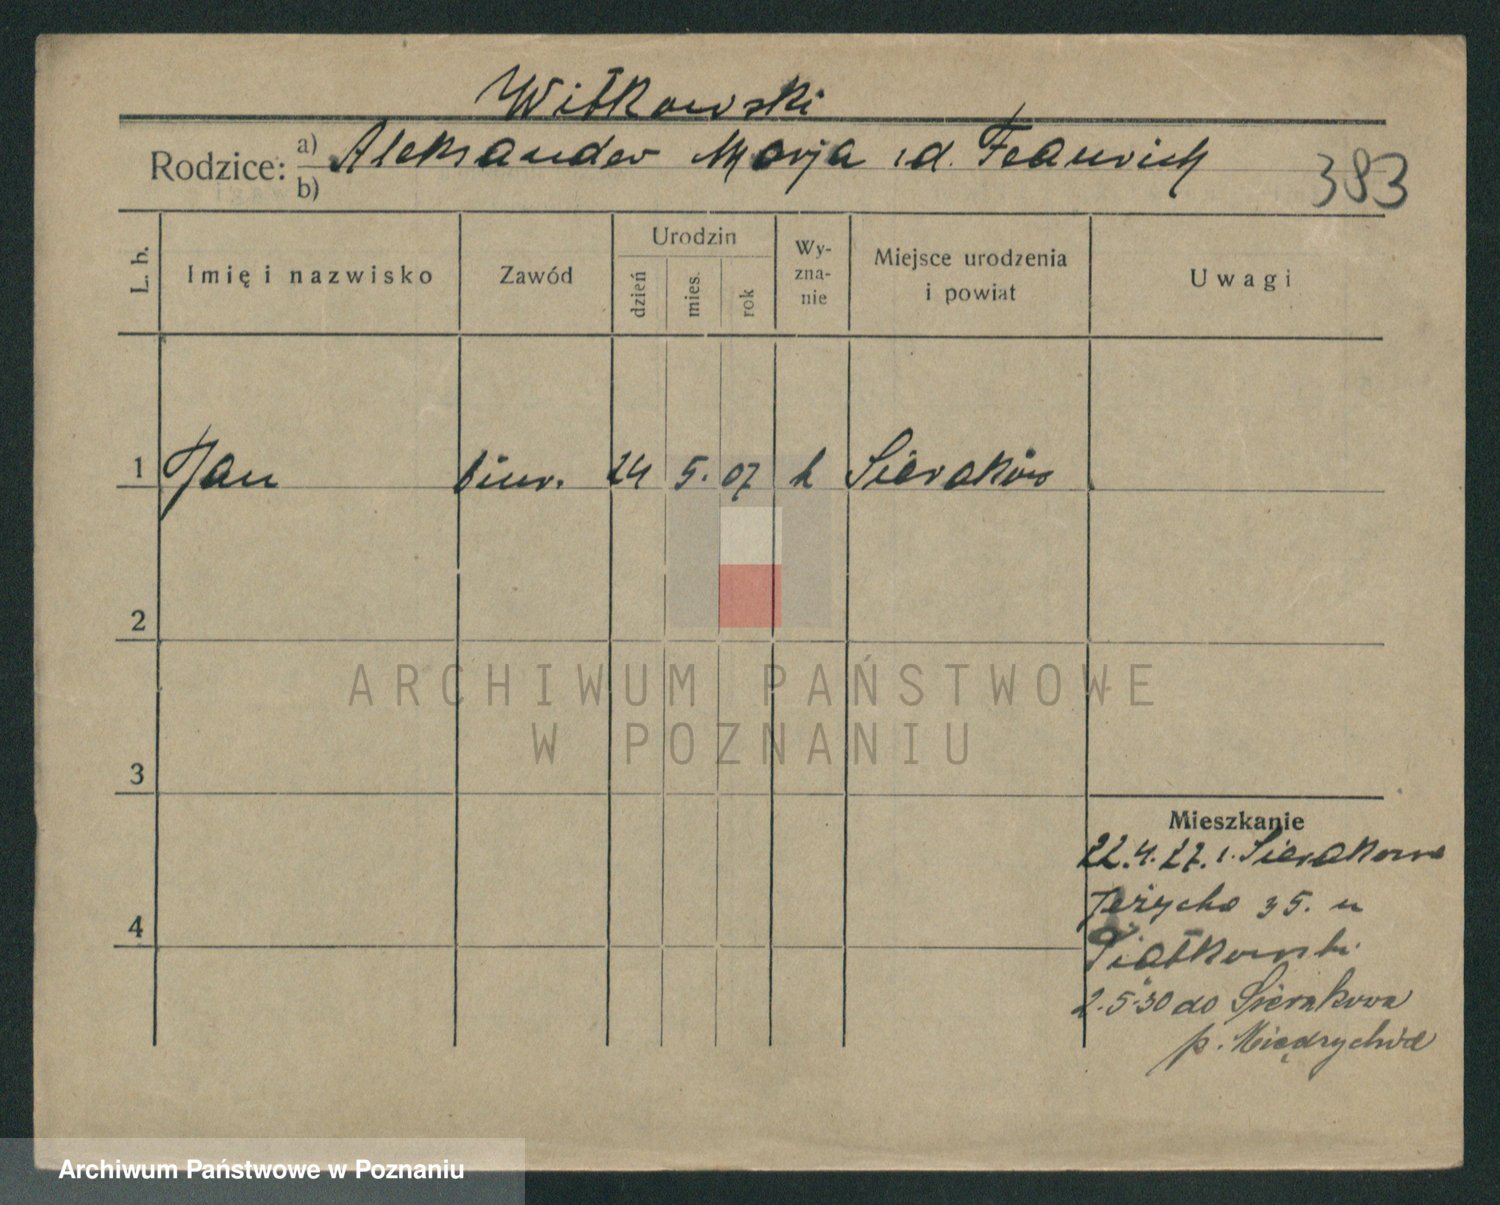 Witkowski
Rodzice: a) Aleksander Marja
b)
383
L. b.
Imię i nazwisko
Zawód
Urodzin
dzień
mies.
rok
Wy-
zna-
nie
Miejsce urodzenia
i powiat
Uwagi
1 Jan biur. 24 5. 07 k Sieraków
2
3
4
Mieszkanie
22.4.27. Sierakowa
35. u
Piątkowski
2.5.30 do Sierakowa
p. Międzychód
ARCHIWUM PAŃSTWOWE
W POZNANIU
Archiwum Państwowe w Poznaniu